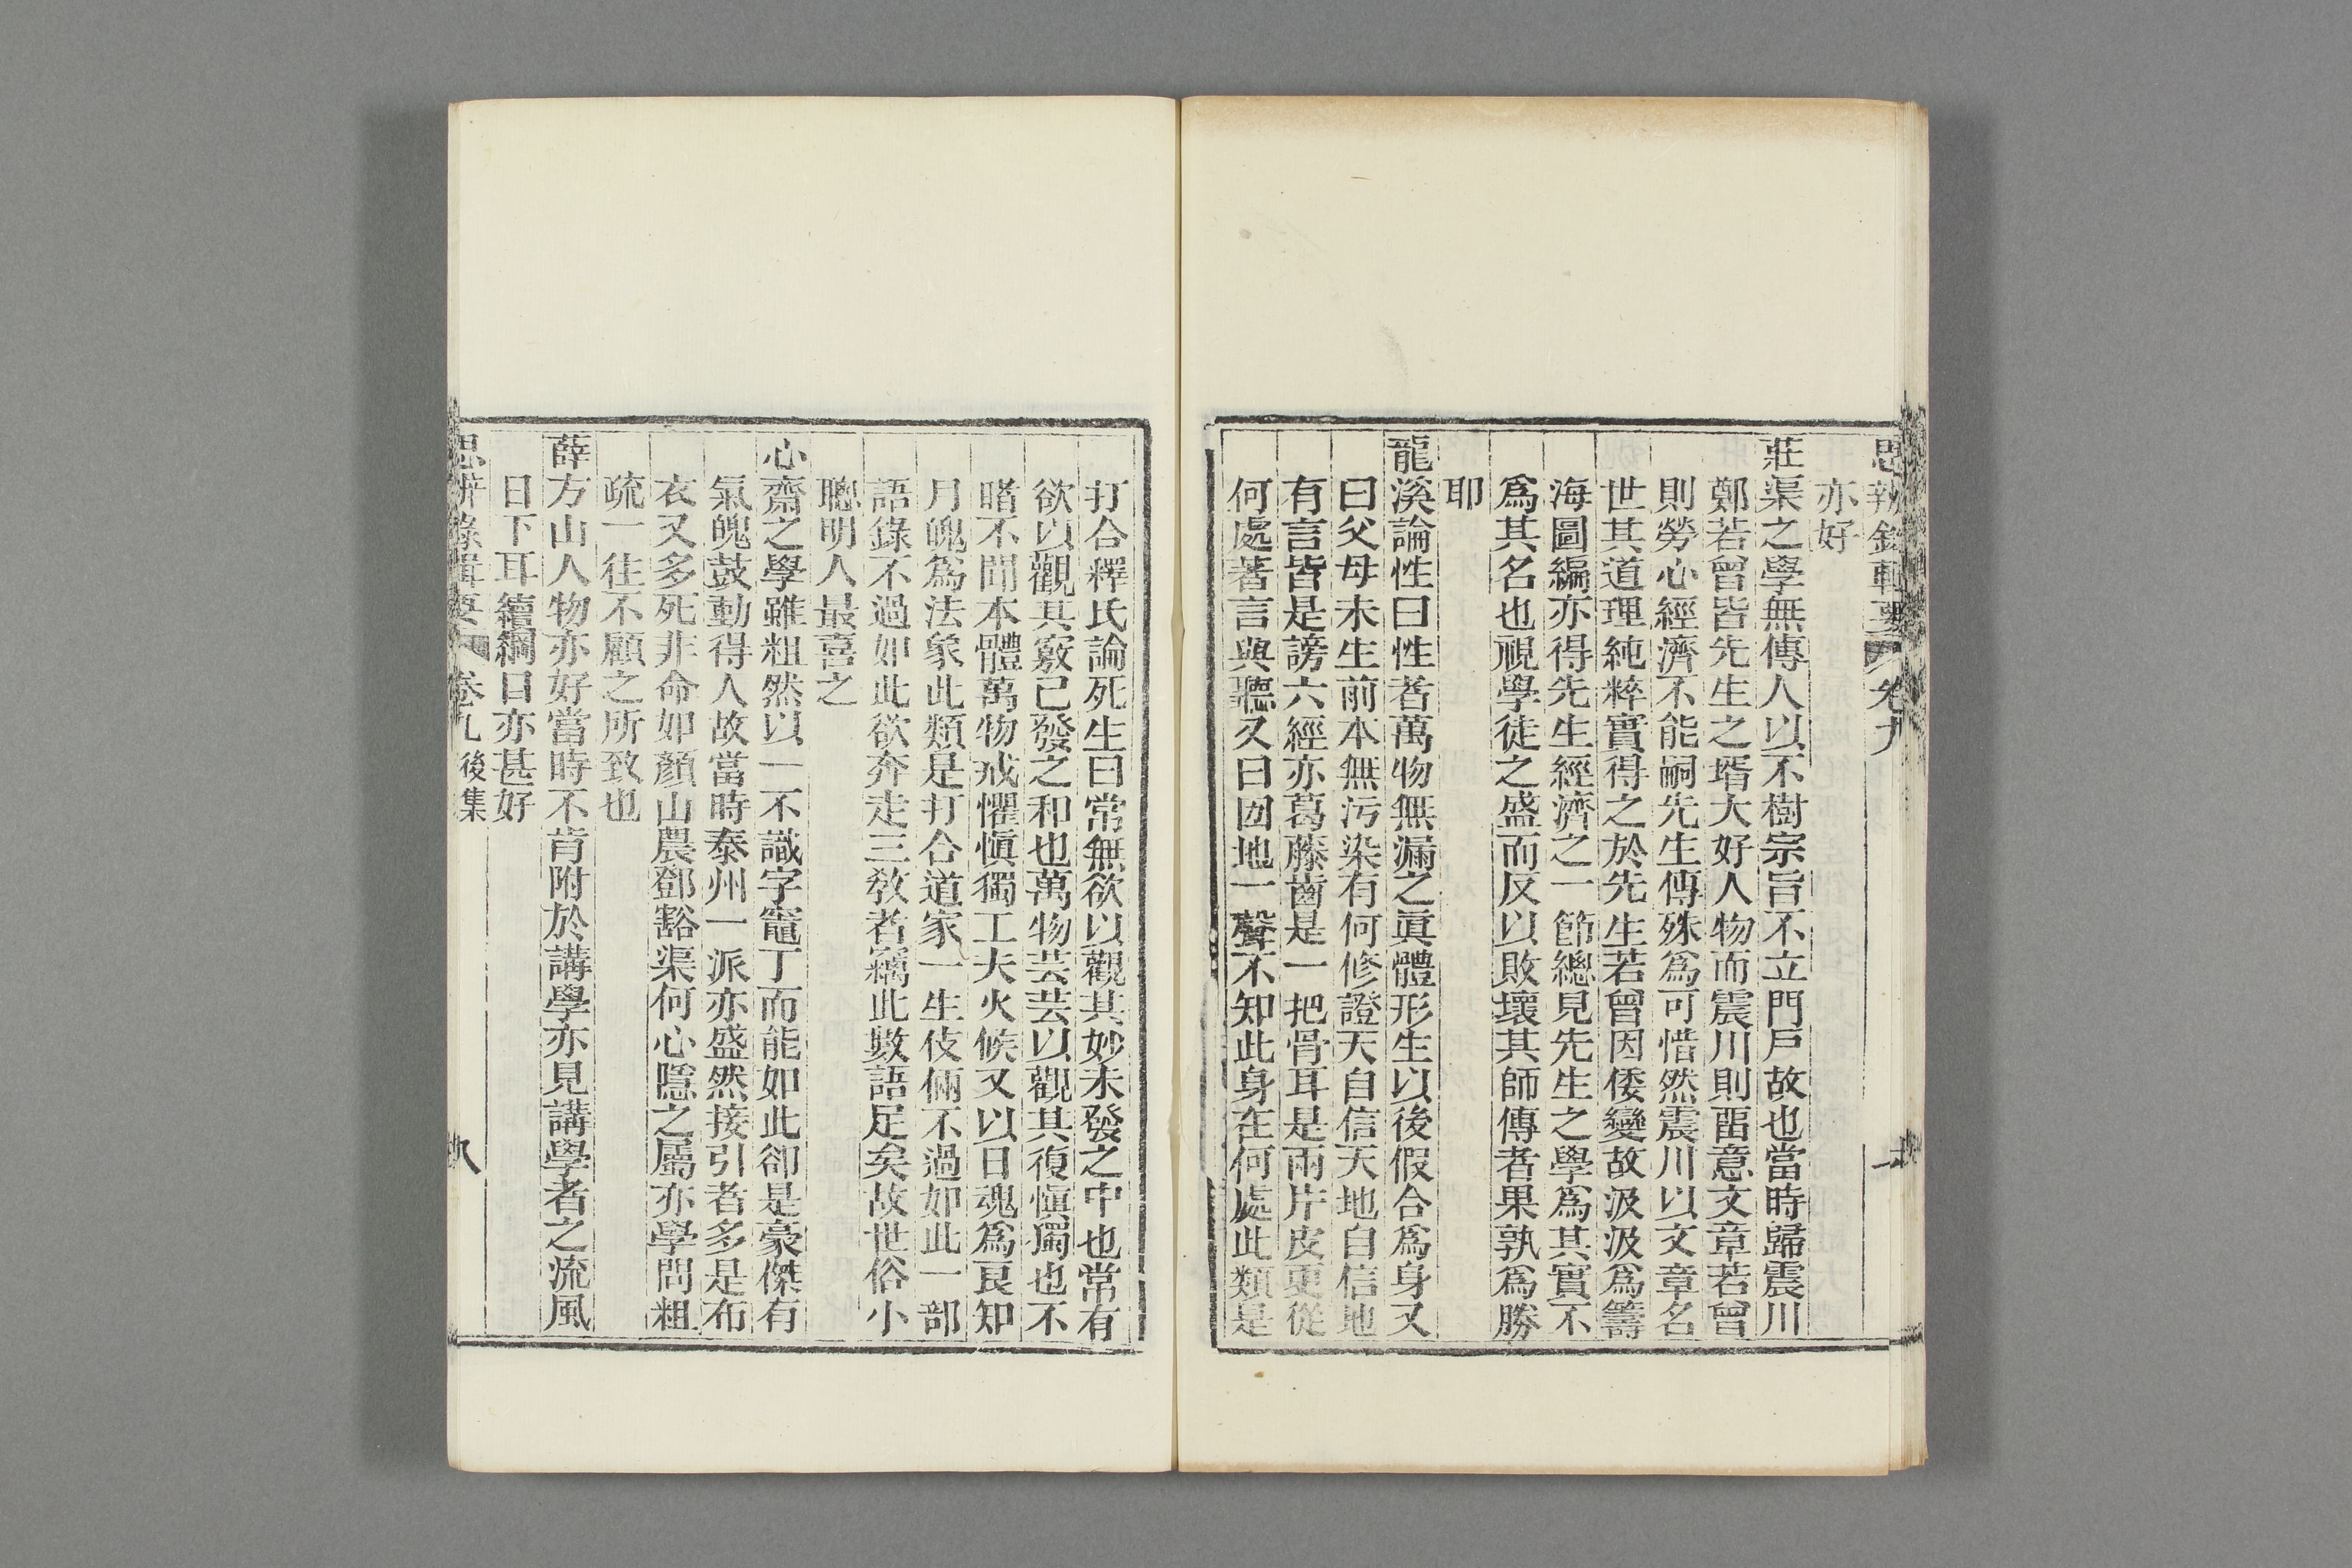 思辨錄輯要 卷九
亦好
莊渠之學無傳人以不樹宗旨不立門戸故也當時歸震川
鄭若曾皆先生之壻大好人物而震川則畱意文章若曾
則勞心經濟不能嗣先生傳殊爲可惜然震川以文章名
世其道理純粹實得之於先生若曾因倭變故汲汲爲籌
海圖編亦得先生經濟之一節總見先生之學爲其實不
爲其名也視學徒之盛而反以敗壞其師傳者果孰爲勝
耶
龍溪論性曰性者萬物無漏之眞體形生以後假合爲身又
曰父母未生前本無污染有何修證天自信天地自信地
有言皆是謗六經亦葛藤齒是一把骨耳是兩片皮更從
何處著言與聽又曰囡地一聲不知此身在何處此類是
打合釋氏論死生曰常無欲以觀其妙未發之中也常有
欲以觀其竅已發之和也萬物芸芸以觀其復愼獨也不
睹不聞本體萬物戒懼愼獨工夫火候又以日魂爲良知
月魄爲法象此類是打合道家一生伎倆不過如此一部
語錄不過如此欲奔走三敎者竊此數語足矣故世俗小
聰明人最喜之
心齋之學雖粗然以一不識字竈丁而能如此卻是豪傑有
氣魄鼓動得人故當時泰州一派亦盛然接引者多是布
衣又多死非命如顏山農鄧豁渠何心隱之屬亦學問粗
疏一往不顧之所致也
薛方山人物亦好當時不肯附於講學亦見講學者之流風
日下耳續綱目亦甚好
思辨錄輯要 卷九後集 八